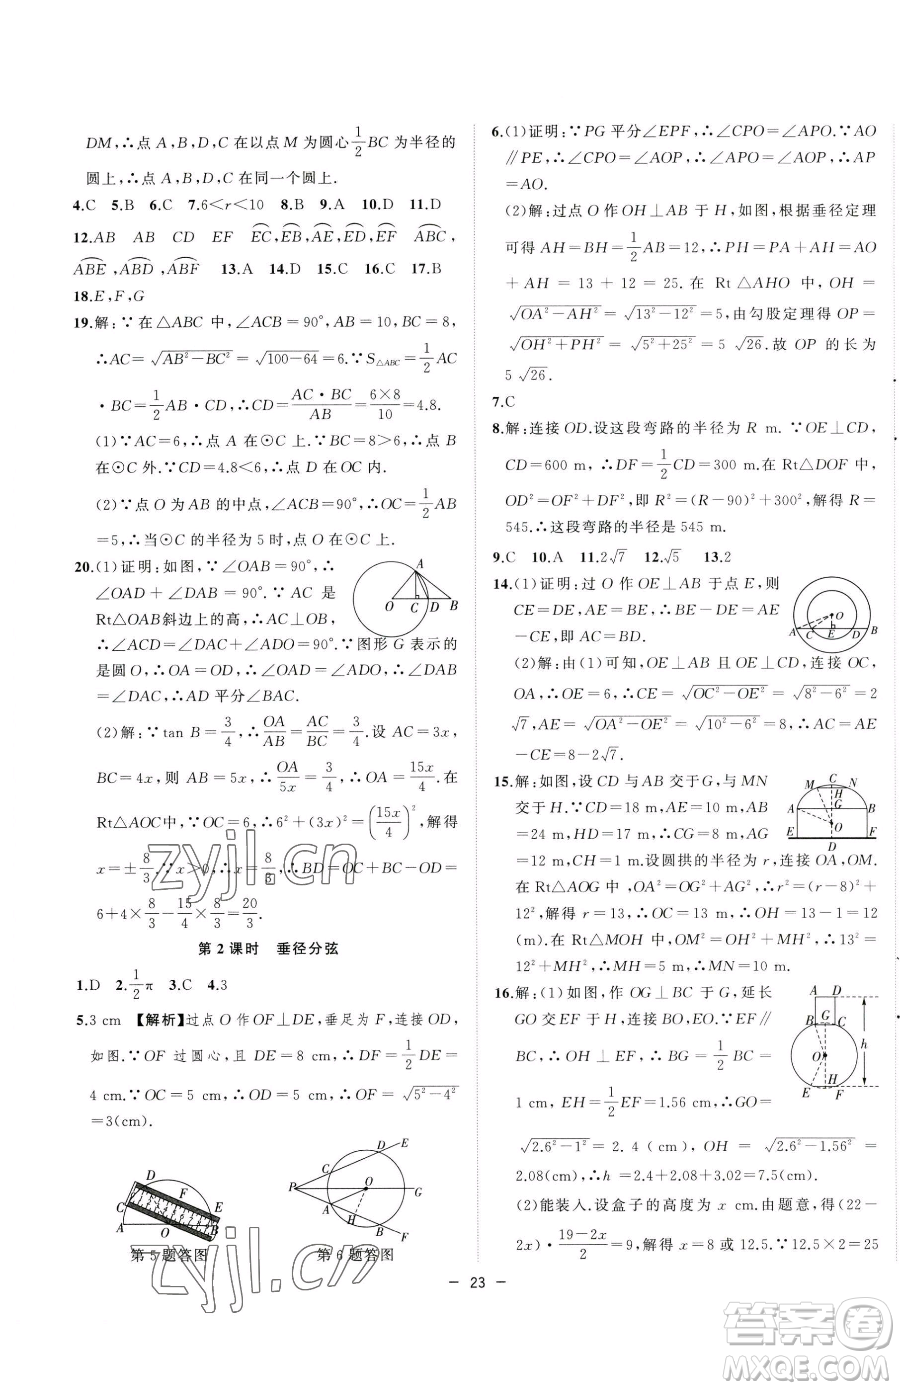 DM,∴点 A,B,D,C 在以点 M 为圆心 1/2 BC 为半径的
圆上,∴点 A,B,D,C 在同一个圆上.
4.C 5.B 6.C 7.6<r<10 8.B 9.A 10.D 11.D
12.AB AB CD EF E͡C,E͡B,A͡E,E͡D,E͡F A͡BC,
A͡BE,A͡BD,A͡BF 13.A 14.D 15.C 16.C 17.B
18.E,F,G
19.解:∵在△ABC 中,∠ACB=90°,AB=10,BC=8,
∴AC=√(AB²-BC²)=√(100-64)=6.∵S△ABC=1/2 AC
·BC=1/2 AB·CD,∴CD=(AC·BC)/AB=(6×8)/10=4.8.
(1)∵AC=6,∴点 A 在⊙C 上.∵BC=8>6,∴点 B
在⊙C 外.∵CD=4.8<6,∴点 D 在⊙C 内.
(2)∵点 O 为 AB 的中点,∠ACB=90°,∴OC=1/2 AB
=5,∴当⊙C 的半径为 5 时,点 O 在⊙C 上.
20.(1)证明:如图,∵∠OAB=90°,∴
∠OAD+∠BAD=90°.∵AC 是
Rt△OAB斜边上的高,∴AC⊥OB,
∴∠ACD=90°,
∴∠DAC+∠ADO=90°.∵图形 G 表示的
是圆 O,∴OA=OD,∴∠OAD=∠ADO,∴∠DAB
=∠DAC,∴AD 平分∠BAC.
(2)解:∵tan B=3/4,∴OA/AB=AC/BC=3/4.设 AC=3x,
BC=4x,则 AB=5x,∴OA/5x=3/4,∴OA=15x/4.在
Rt△AOC中,∵OC=6,∴6²+(3x)²=(15x/4)²,解得
x=±8/3.∵x>0,∴x=8/3,∴BD=OC+BC-OD=
6+4×8/3-15/4×8/3=20/3.
第 2 课时 垂径分弦
1.D 2.1/2 π 3.C 4.3
5.3 cm 【解析】过点 O 作 OF⊥DE,垂足为 F,连接 OD,
如图.∵OF 过圆心,且 DE=8 cm,∴DF=1/2 DE=
4 cm.∵OC=5 cm,∴OD=5 cm,∴OF=√(5²-4²)
=3(cm).
第 5 题答图 第 6 题答图
6.(1)证明:∵PG 平分∠EPF,∴∠CPO=∠APO.∵AO
∥PE,∴∠CPO=∠AOP,∴∠APO=∠AOP,∴AP
=AO.
(2)解:过点 O 作 OH⊥AB 于 H,如图,根据垂径定理
可得 AH=BH=1/2 AB=12,∴PH=PA+AH=AO
+AH=13+12=25.在 Rt△AHO 中,OH=
√(OA²-AH²)=√(13²-12²)=5,由勾股定理得 OP=
√(OH²+PH²)=√(5²+25²)=5√26.故 OP 的长为
5√26.
7.C
8.解:连接 OD.设这段弯路的半径为 R m.∵OE⊥CD,
CD=600 m,∴DF=1/2 CD=300 m.在 Rt△DOF 中,
OD²=OF²+DF²,即 R²=(R-90)²+300²,解得 R=
545.∴这段弯路的半径是 545 m.
9.C 10.A 11.2√7 12.√5 13.2
14.(1)证明:过 O 作 OE⊥AB 于点 E,则
CE=DE,AE=BE,∴BE-DE=AE
-CE,即 AC=BD.
(2)解:由(1)可知,OE⊥AB 且 OE⊥CD,连接 OC,
OA,∴OE=6,∴CE=√(OC²-OE²)=√(8²-6²)=2
√7,AE=√(OA²-OE²)=√(10²-6²)=8,∴AC=AE
-CE=8-2√7.
15.解:如图,设 CD 与 AB 交于 G,与 MN
交于 H.∵CD=18 m,AE=10 m,AB
=24 m,HD=17 m,∴CG=8 m,AG
=12 m,CH=1 m.设圆拱的半径为 r,连接 OA,OM.
在 Rt△AOG 中,OA²=OG²+AG²,∴r²=(r-8)²+
12²,解得 r=13,∴OC=13 m,∴OH=13-1=12
(m).在 Rt△MOH 中,OM²=OH²+MH²,∴13²=
12²+MH²,解得 MH²=25,∴MH=5 m,∴MN=10 m.
16.解:(1)如图,作 OG⊥BC 于 G,延长
GO 交 EF 于 H,连接 BO,EO.∵EF∥
BC,∴OH⊥EF,∴BG=1/2 BC=
1 cm,EH=1/2 EF=1.56 cm,∴GO=
√(2.6²-1²)=2.4(cm),OH=√(2.6²-1.56²)=
2.08(cm),∴h=2.4+2.08+3=7.5(cm).
(2)能装入.设盒子的高度为 x cm.由题意,得(22-
2x)·(19-2x)/2=9,解得 x=8 或 12.5.∵12.5×2=25
— 23 —
zyjl.cn
zyjl.cn
答案圈
MXQE.COM